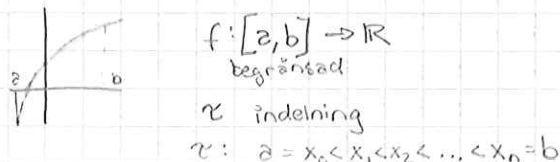 f: [a,b] → ℝ
begränsad
a b
τ indelning
τ: a = x₀ < x₁ < x₂ < ... < xₙ = b